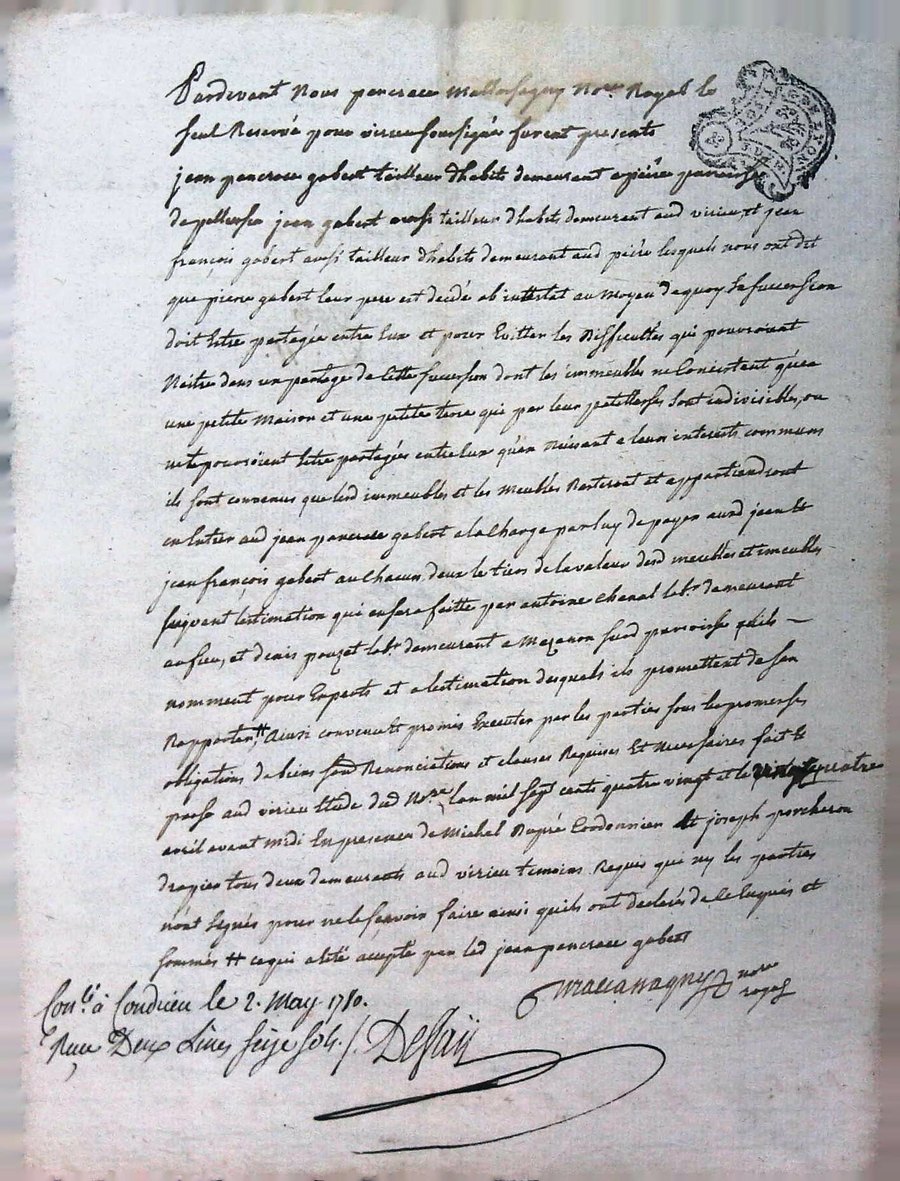 Pardevant Nous pancrace Mallassagny No.re Royal le
seul Reservé pour virieu soussigné furent presents
jean pancrace gabert tailleur d'habits demeurant a péire parroisse
de pellussin jean gabert aussi tailleur d'habits demeurant aud virieu et jean
françois gabert aussi tailleur d'habits demeurant aud péire lesquels nous ont dit
que pierre gabert leur pere est décédé ab intestat au Moyen de quoy sa succession
doit être partagée entre Eux et pour Eviter les Difficultes qui pourroient
Naître dans un partage de cette succession dont les immeubles ne Consistent qu'en
une petite Maison et une petite terre qui par leur petitesses sont indivisibles, ou
ne pouroient être partagés entre eux qu'en Nuisant a leurs interests communs
ils sont convenus que lesd immeubles et les Meubles Resteront et appartiendront
en Entier aud jean pancrace gabert a la Charge par luy de payer aud jean et
jean françois gabert au Chacun deux le tiers de la valeur desd meubles et imeubles
suivant l'estimation qui en sera faitte par antoine chanal lab.r demeurant
au fieu, et denis pouzet lab.r demeurant a Mezanon susd parroisse qu'ils
nomment pour Experts et a l'estimation desquels ils promettent de s'en
Rapporter, Ainsi convenu et promis Executer par les parties sous les promesses
obligations de biens sous Renonciations et clauses Requises Et Necessaires fait et
passé aud virieu Etude dud No.re l'an mil sept cents quatre vingt et le vingt quatre
avril avant midi En presence de Michel Dupré Cordonnier et joseph porcheron
drapier tous deux demeurants aud virieu temoins Requis que ny les parties
n'ont signés pour ne le scavoir faire ainsi qu'ils ont declarés de ce Enquis et
sommés ++ ce qui a été accepté par led jean pancrace gabert
nore royal
Con.lé à Condrieu le 2. May 1780.
Reçu Deux Livres seize sols. /. Desaÿ